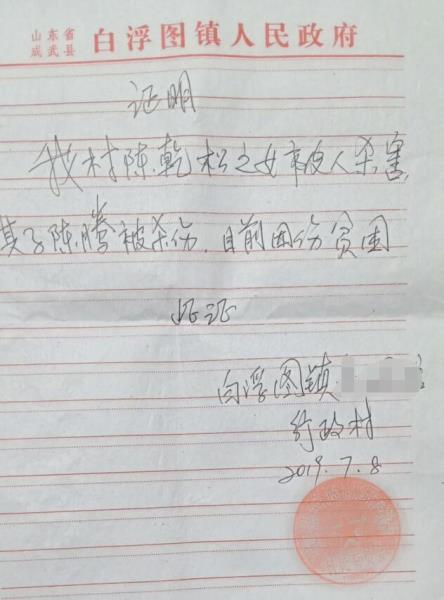 山东省
成武县 白浮图镇人民政府
证明
我村陈乾松之女被人杀害
其子陈腾被杀伤.目前因伤贫困
此证
白浮图镇
行政村
2019.7.8